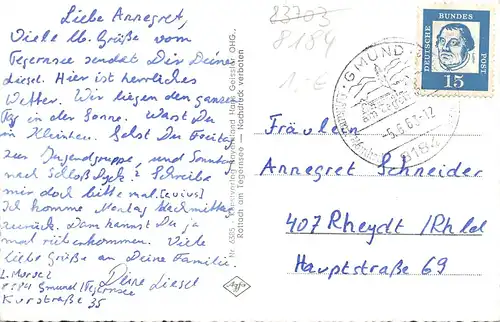 Liebe Annegret,
Viele lb. Grüße vom
Tegernsee sendet Dir Deine
Liesel. Hier ist herrliches
Wetter. Wir liegen den ganzen
Tag in der Sonne. Warst Du
in Kleinken. Gehst Du Freitag
zur Jugendgruppe, und Sonntag
nach Schloß Dyck? Schreibe
mir doch bitte mal.
Ich komme Montag Nachmittag
zurück. Dann kannst Du ja
mal rüberkommen. Viele
liebe Grüße an Deine Familie.
Deine Liesel
L. Morsel
8184 Gmund/Tegernsee
Kurstraße 35
Nr. 6305 Hans Geissler OHG.,
Rottach am Tegernsee — Nachdruck verboten
23703
8184
1.-€
DEUTSCHE BUNDESPOST
15
GMUND
am Tegernsee
-5.6.63-12
8184
Fräulein
Annegret Schneider
407 Rheydt /Rhld
Hauptstraße 69